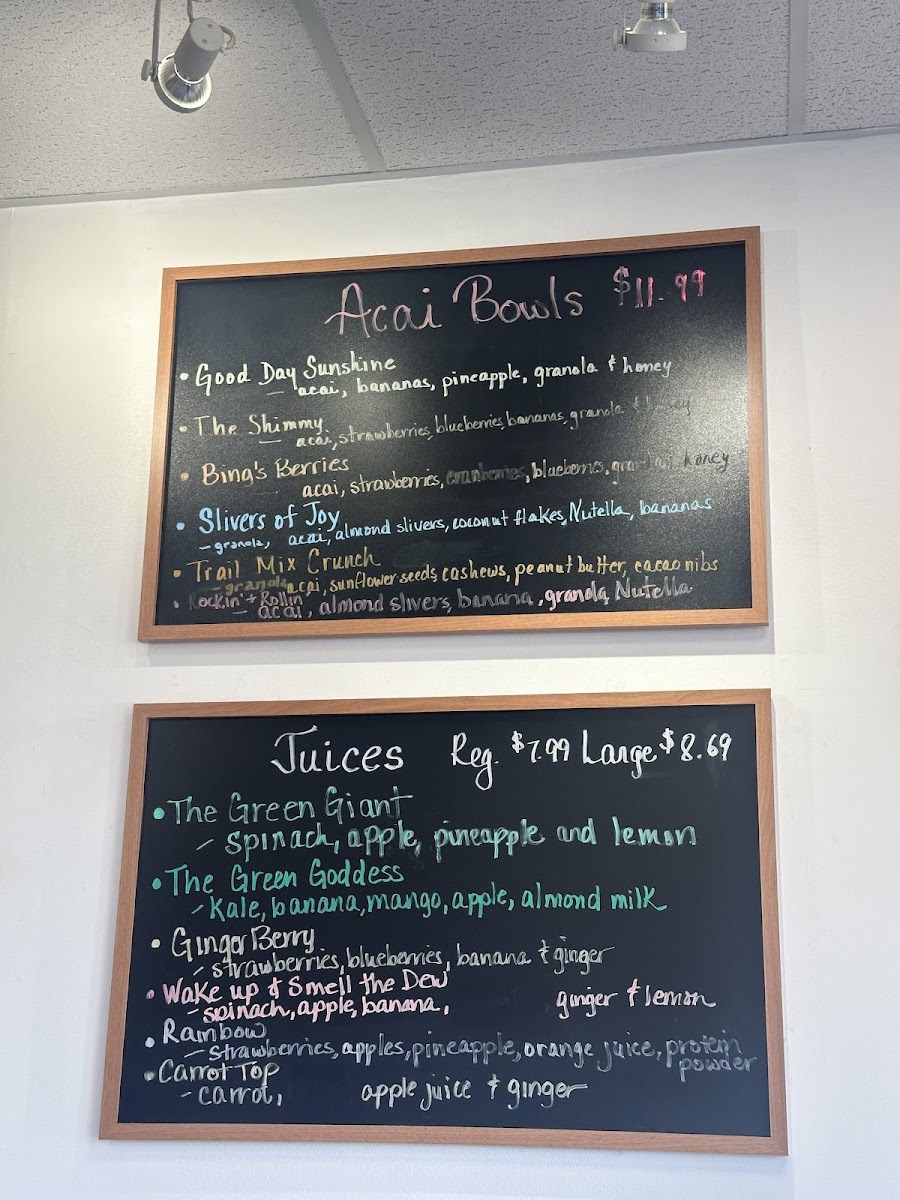 Acai Bowls $11.99
• Good Day Sunshine
— acai, bananas, pineapple, granola & honey
• The Shimmy
— acai, strawberries, blueberries, bananas, granola & honey
• Bing's Berries
acai, strawberries, cranberries, blueberries, granola honey
• Slivers of Joy
— granola, acai, almond slivers, coconut flakes, Nutella, bananas
• Trail Mix Crunch
— granola acai, sunflower seeds, cashews, peanut butter, cacao nibs
• Rockin' + Rollin
— acai, almond slivers, banana, granola, Nutella
Juices Reg. $7.99 Large $8.69
• The Green Giant
- spinach, apple, pineapple and lemon
• The Green Goddess
- Kale, banana, mango, apple, almond milk
• Ginger Berry
- strawberries, blueberries, banana & ginger
• Wake up & Smell the Dew
- spinach, apple, banana, ginger & lemon
• Rainbow
- strawberries, apples, pineapple, orange juice, protein
powder
• Carrot Top
- carrot, apple juice & ginger